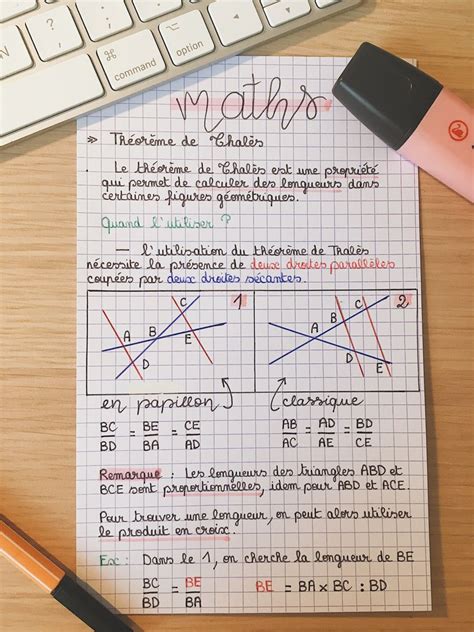 ⌘
command
⌥
option
maths
» Théorème de Thalès
. Le théorème de Thalès est une propriété
qui permet de calculer des longueurs dans
certaines figures géométriques.
Quand l'utiliser ?
— l'utilisation du théorème de Thalès
nécessite la présence de deux droites parallèles
coupées par deux droites sécantes.
1
C
A
B
E
D
2
C
B
A
D
E
en papillon
classique
BC/BD = BE/BA = CE/AD
AB/AC = AD/AE = BD/CE
Remarque : Les longueurs des triangles ABD et
BCE sont proportionnelles, idem pour ABD et ACE.
Pour trouver une longueur, on peut alors utiliser
le produit en croix.
Ex : Dans le 1, on cherche la longueur de BE
BC/BD = BE/BA BE = BA × BC : BD